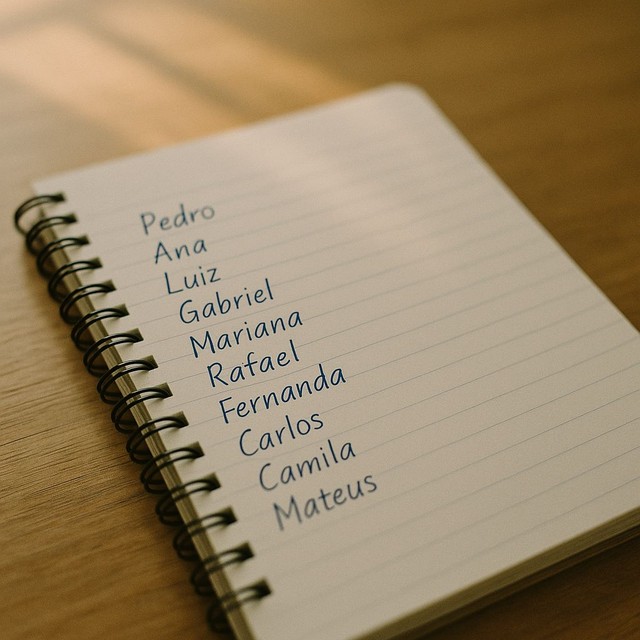 Pedro
Ana
Luiz
Gabriel
Mariana
Rafael
Fernanda
Carlos
Camila
Mateus